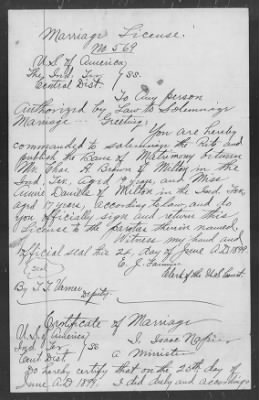 Marriage License.
No 569
U.S. of America,
The Ind. Ter. / SS.
Central Dist.
To Any Person
Authorized by Law to Solemnize
Marriage -- Greeting:
You are hereby
commanded to solemnize the Rite and
publish the Bans of Matrimony between
Mr. Chas. A. Brown of Milton in the
Ind. Ter., Aged years, and Miss
Annie Daniels of Milton in the Ind. Ter,
aged 17 years, according to law, and do
you officially sign and return this
License to the parties therein named.
Witness my hand and
official seal this 22, day of June A.D. 1899.
(seal) E. J. Fannin
Clerk of the U.S. Court.
By T. T. Varner
Deputy.
Certificate of Marriage
U.S. of America,
Ind. Ter. / SS I, Isaac Napier
Cent Dist. a Minister
do hereby certify that on the 25th day of
June A.D 1899, I did duly and according